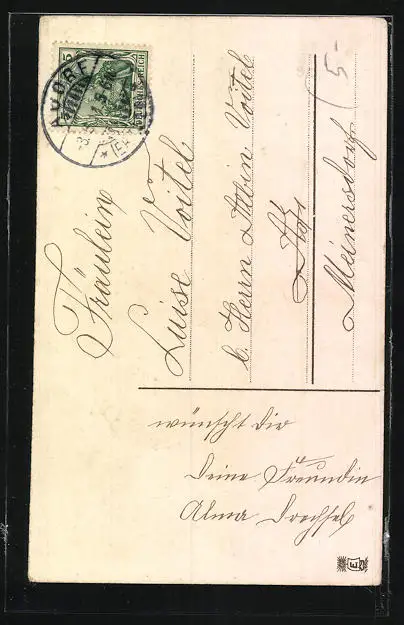 Fräulein
Luise Voitel
b. Herrn Albin Voitel
Meinersdorf
5-
wünscht Dir
Deine Freundin
Alma Drechsel
5
DEUTSCHES REICH
THUM
E